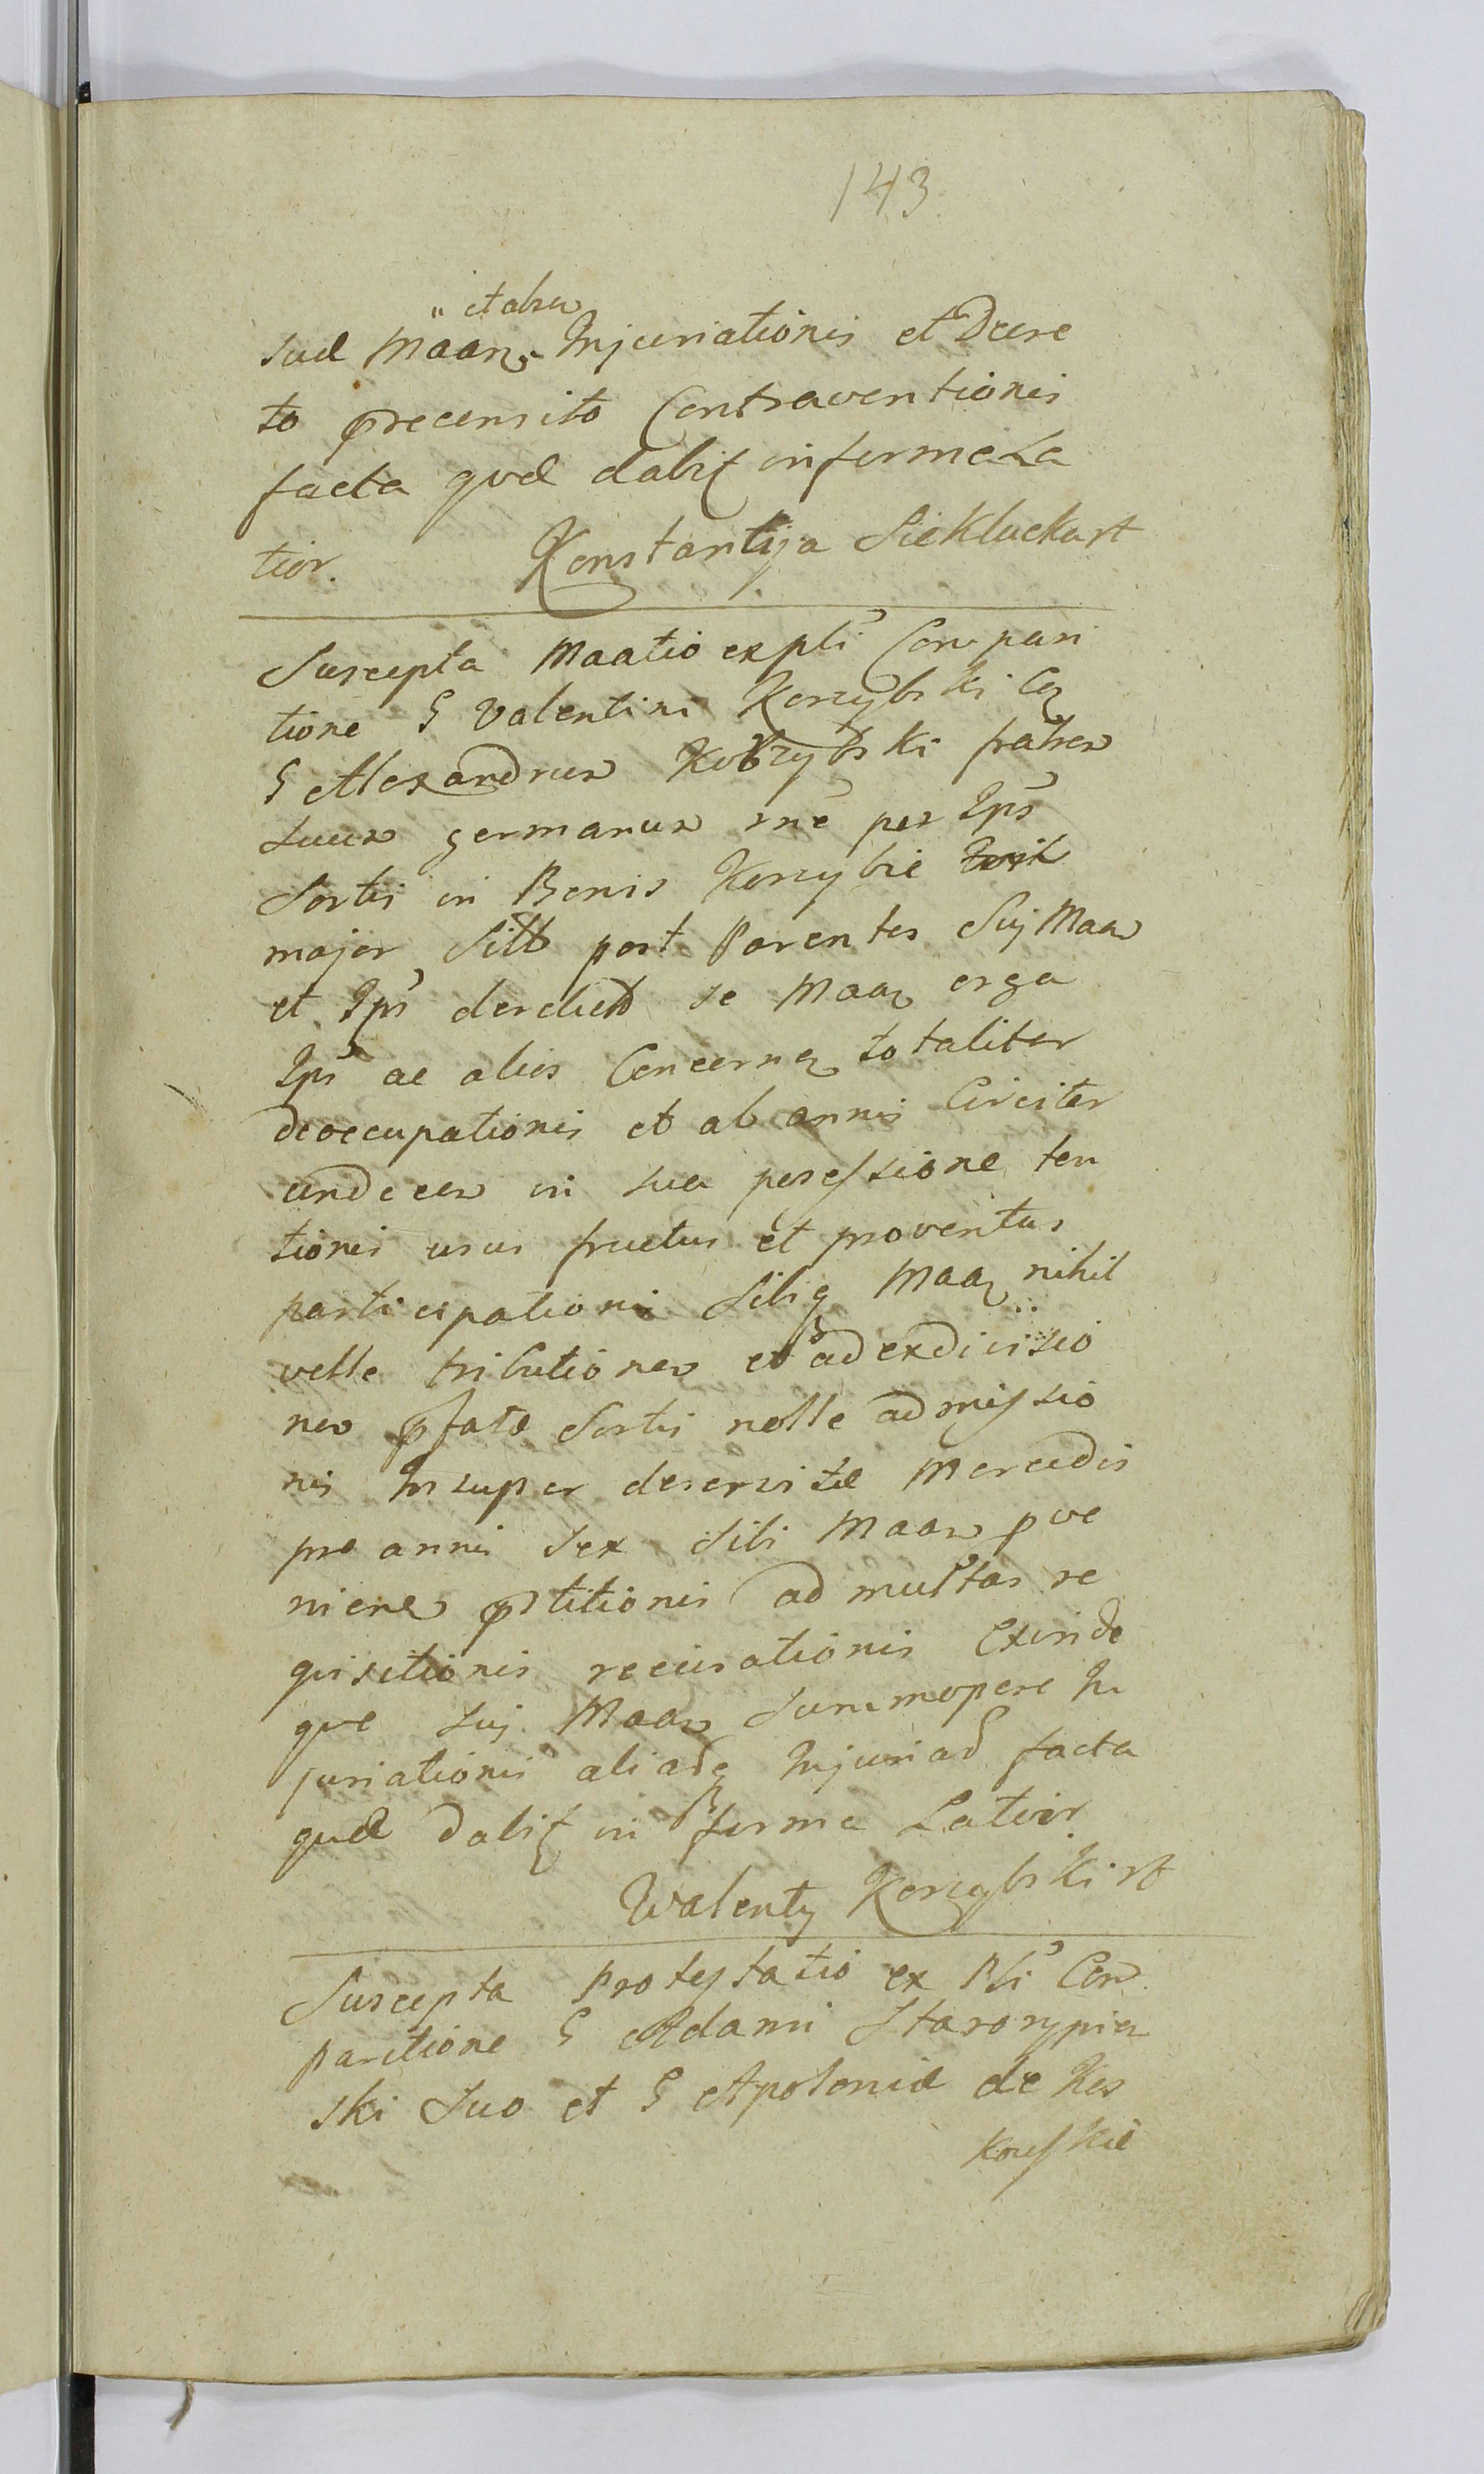 143
" et alsu
sud Maan Injuriationis et Decre
to precensito Contraventionis
facta quæ dabit in forma La
tior. Konstantyja Siekluckart
Suscepta Maatio ex pli Compari
tione G Valentini Korzybski Co
G Alexandrum Korzybski fratrem
suum germanum rne per Ips
Sortis in Bonis Korzybie
major Sibi post Parentes Suj Maan
et Ips derelict se Maan erga
Ips ac alios Concern totaliter
deoccupationis et ab annis Circiter
undecem in sua possessione ten
tionis usus fructus et proventus
participationis Sibiq Maan nihil
velle tributionem et ad exdivisio
nem pfatæ Sortis nolle admissio
nis Insuper deservitæ Mercedis
pro annis sex Sibi Maan pve
nienæ pstitionis ad multas re
quisitionis recusationis Exinde
que Suj Maan Summopere In
juriationis aliasq Injurias facta
quæ dabit in forma Latior
Walenty Korzybski rt
Suscepta Protestatio ex Pli Com
paritione G Adami Starorypin
ski Suo et G Apoloniæ de Kos
Kouskie